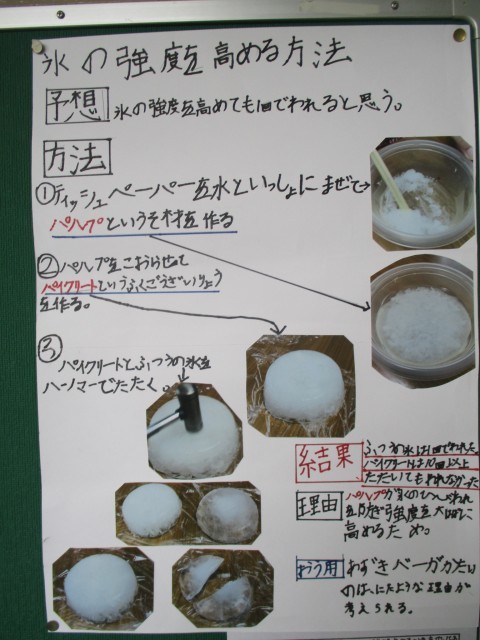 氷の強度を高める方法
予想 氷の強度を高めても1回でわれると思う。
方法
①ティッシュペーパーを水といっしょにまぜて
パルプというそ材を作る
②パルプをこおらせて
パイクリートというふくごうざいりょう
を作る。
③
パイクリートとふつうの氷を
ハンマーでたたく。
結果 ふつうの氷は1回でわれた。
パイクリートは10回以上
たたいてもわれなかった
理由 パルプが氷のひびわれ
を防ぎ強度を大はばに
高めるため。
おう用 あずきバーがかたい
のはにたような理由が
考えられる。